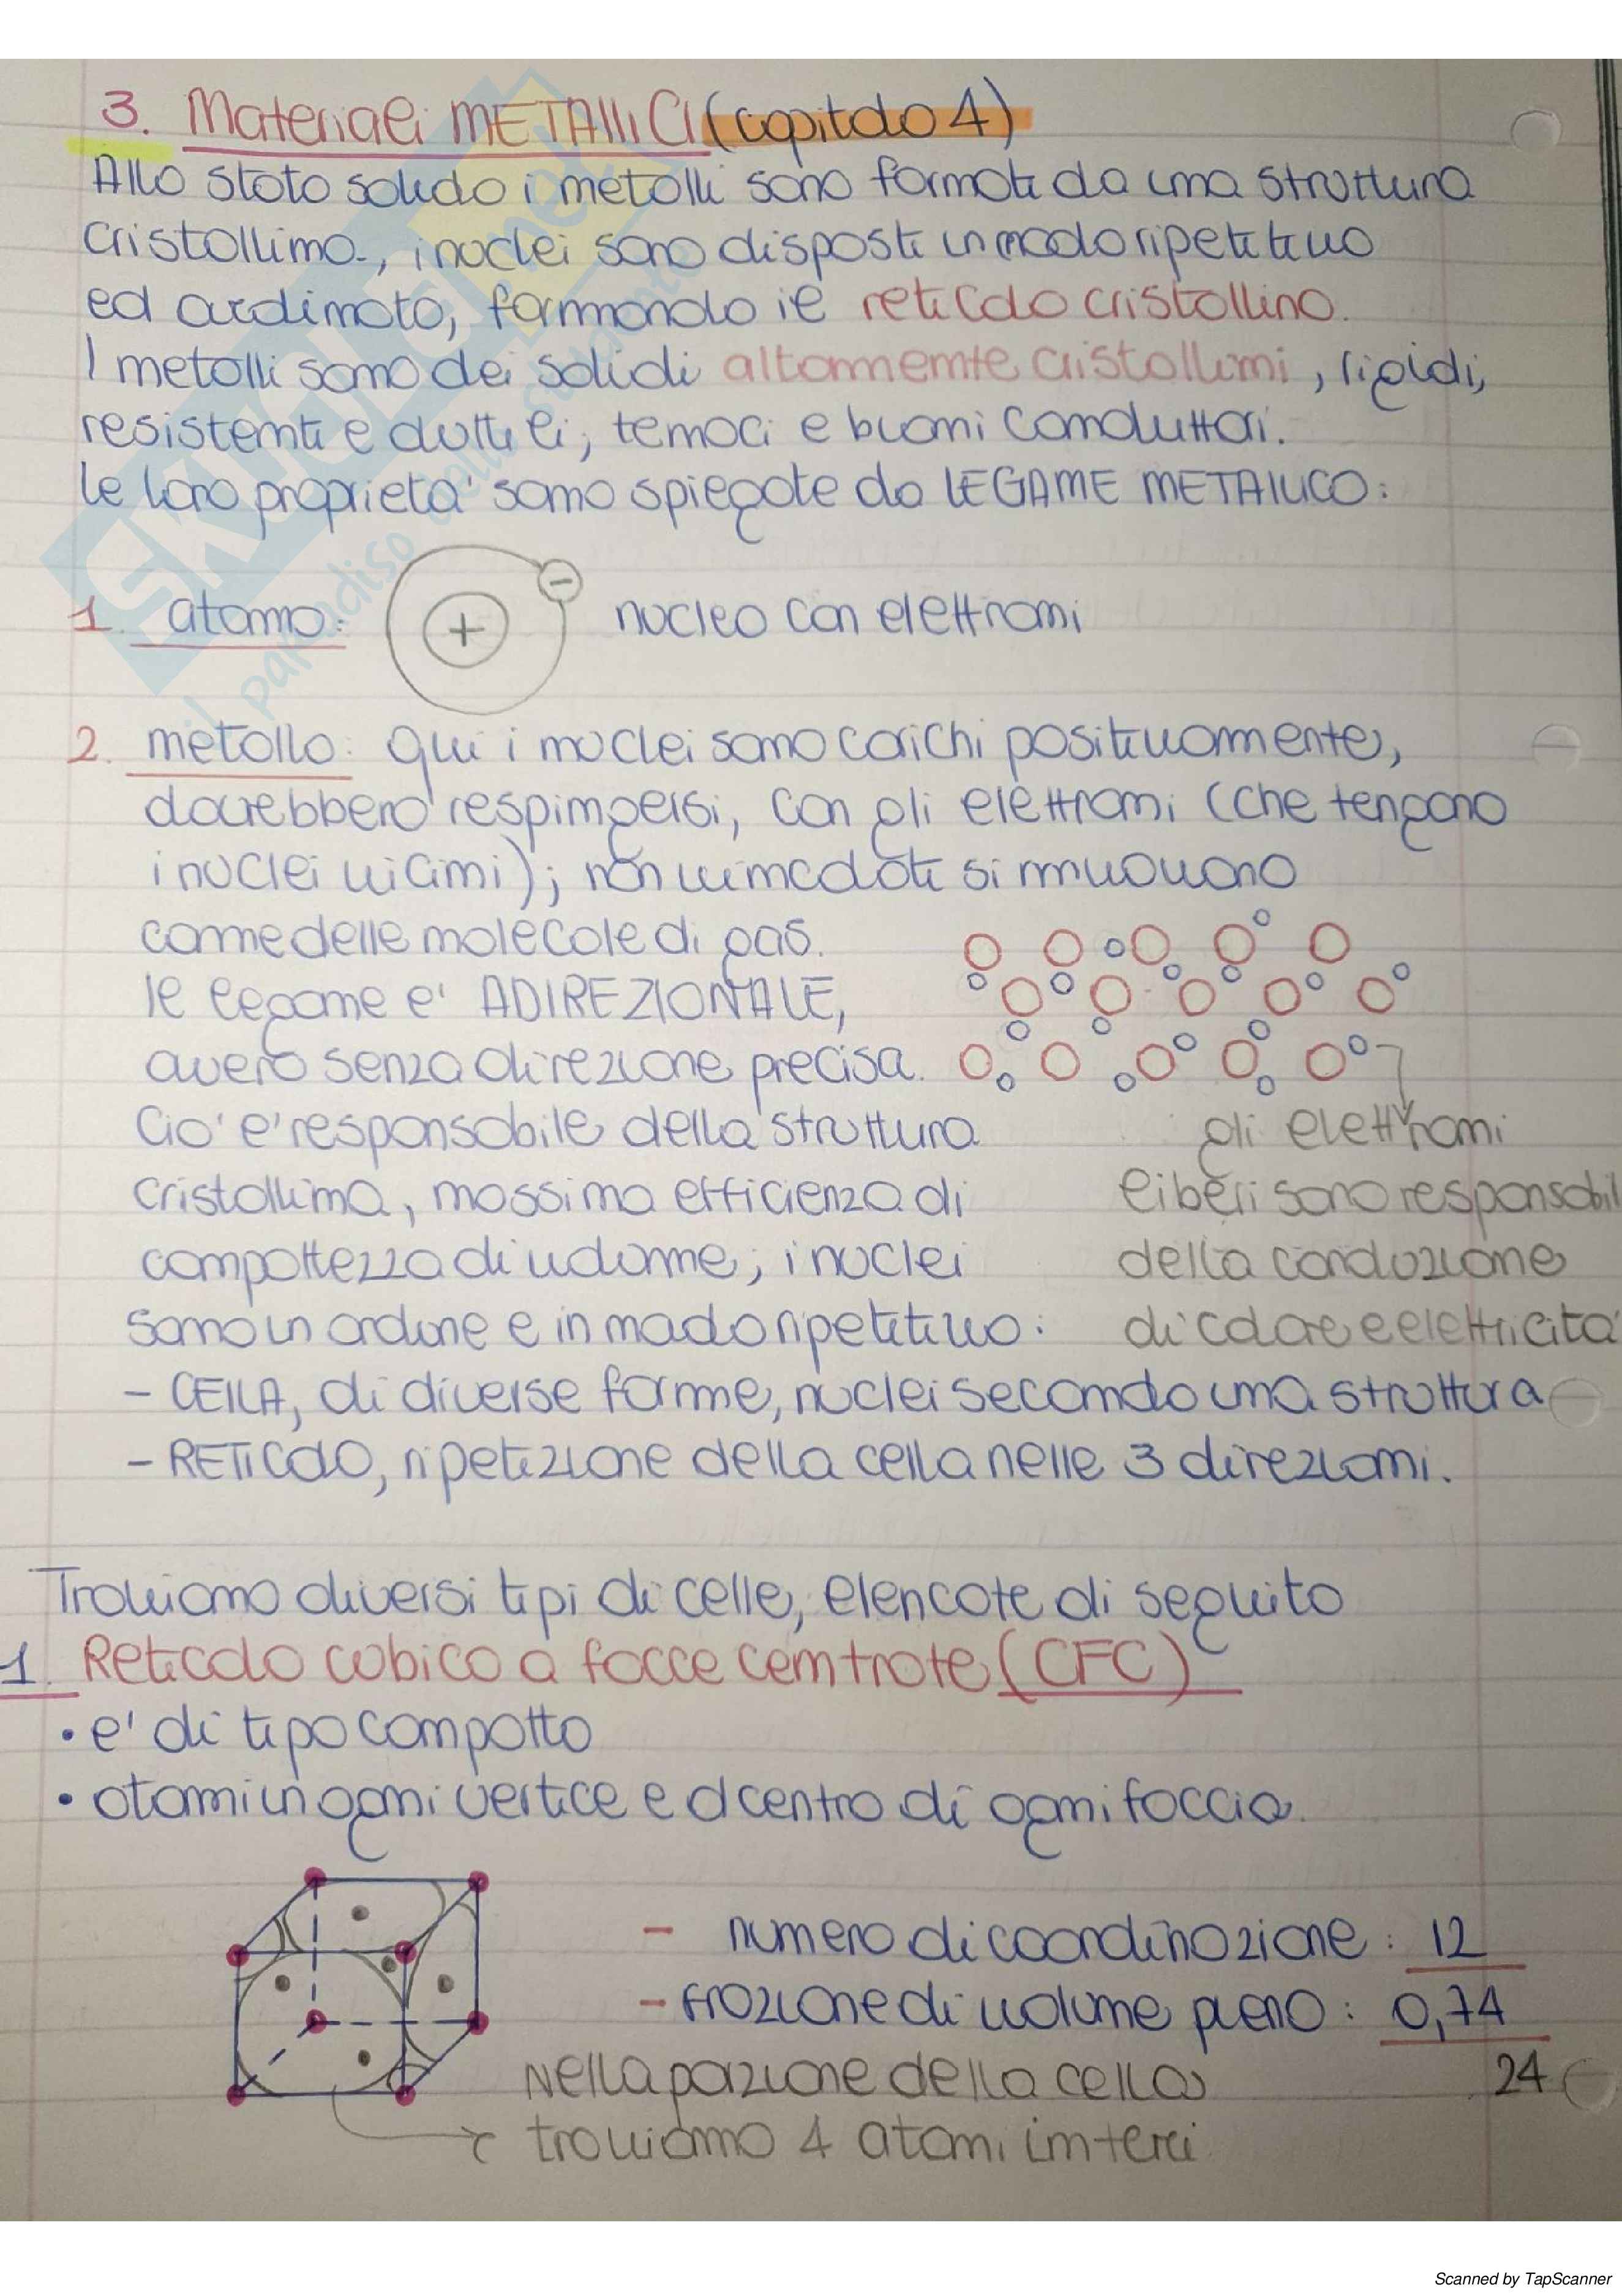 3. Materiali METALLICI (capitolo 4)
Allo stato solido i metalli sono formati da una struttura
cristallina, i nuclei sono disposti in modo ripetitivo
ed ordinato, formando il reticolo cristallino.
I metalli sono dei solidi altamente cristallini, rigidi,
resistenti e duttili, tenaci e buoni conduttori.
Le loro proprietà sono spiegate da LEGAME METALLICO:
1. atomo: + − nucleo con elettroni
2. metallo: qui i nuclei sono carichi positivamente,
dovrebbero respingersi, con gli elettroni (che tengono
i nuclei vicini); non vincolati si muovono
come delle molecole di gas.
Il legame è ADIREZIONALE,
ovvero senza direzione precisa.
Ciò è responsabile della struttura
cristallina, massima efficienza di
compattezza di volume; i nuclei
sono in ordine e in modo ripetitivo:
gli elettroni
liberi sono responsabil
della conduzione
di calore e elettricità
- CELLA, di diverse forme, nuclei secondo una struttura
- RETICOLO, ripetizione della cella nelle 3 direzioni.
Troviamo diversi tipi di celle, elencate di seguito
1. Reticolo cubico a facce centrate (CFC)
• è di tipo compatto
• atomi in ogni vertice e al centro di ogni faccia.
- numero di coordinazione: 12
- frazione di volume pieno: 0,74
Nella porzione della cella
troviamo 4 atomi interi
24
SKUOLA.net
il paradiso dello studente
Scanned by TapScanner